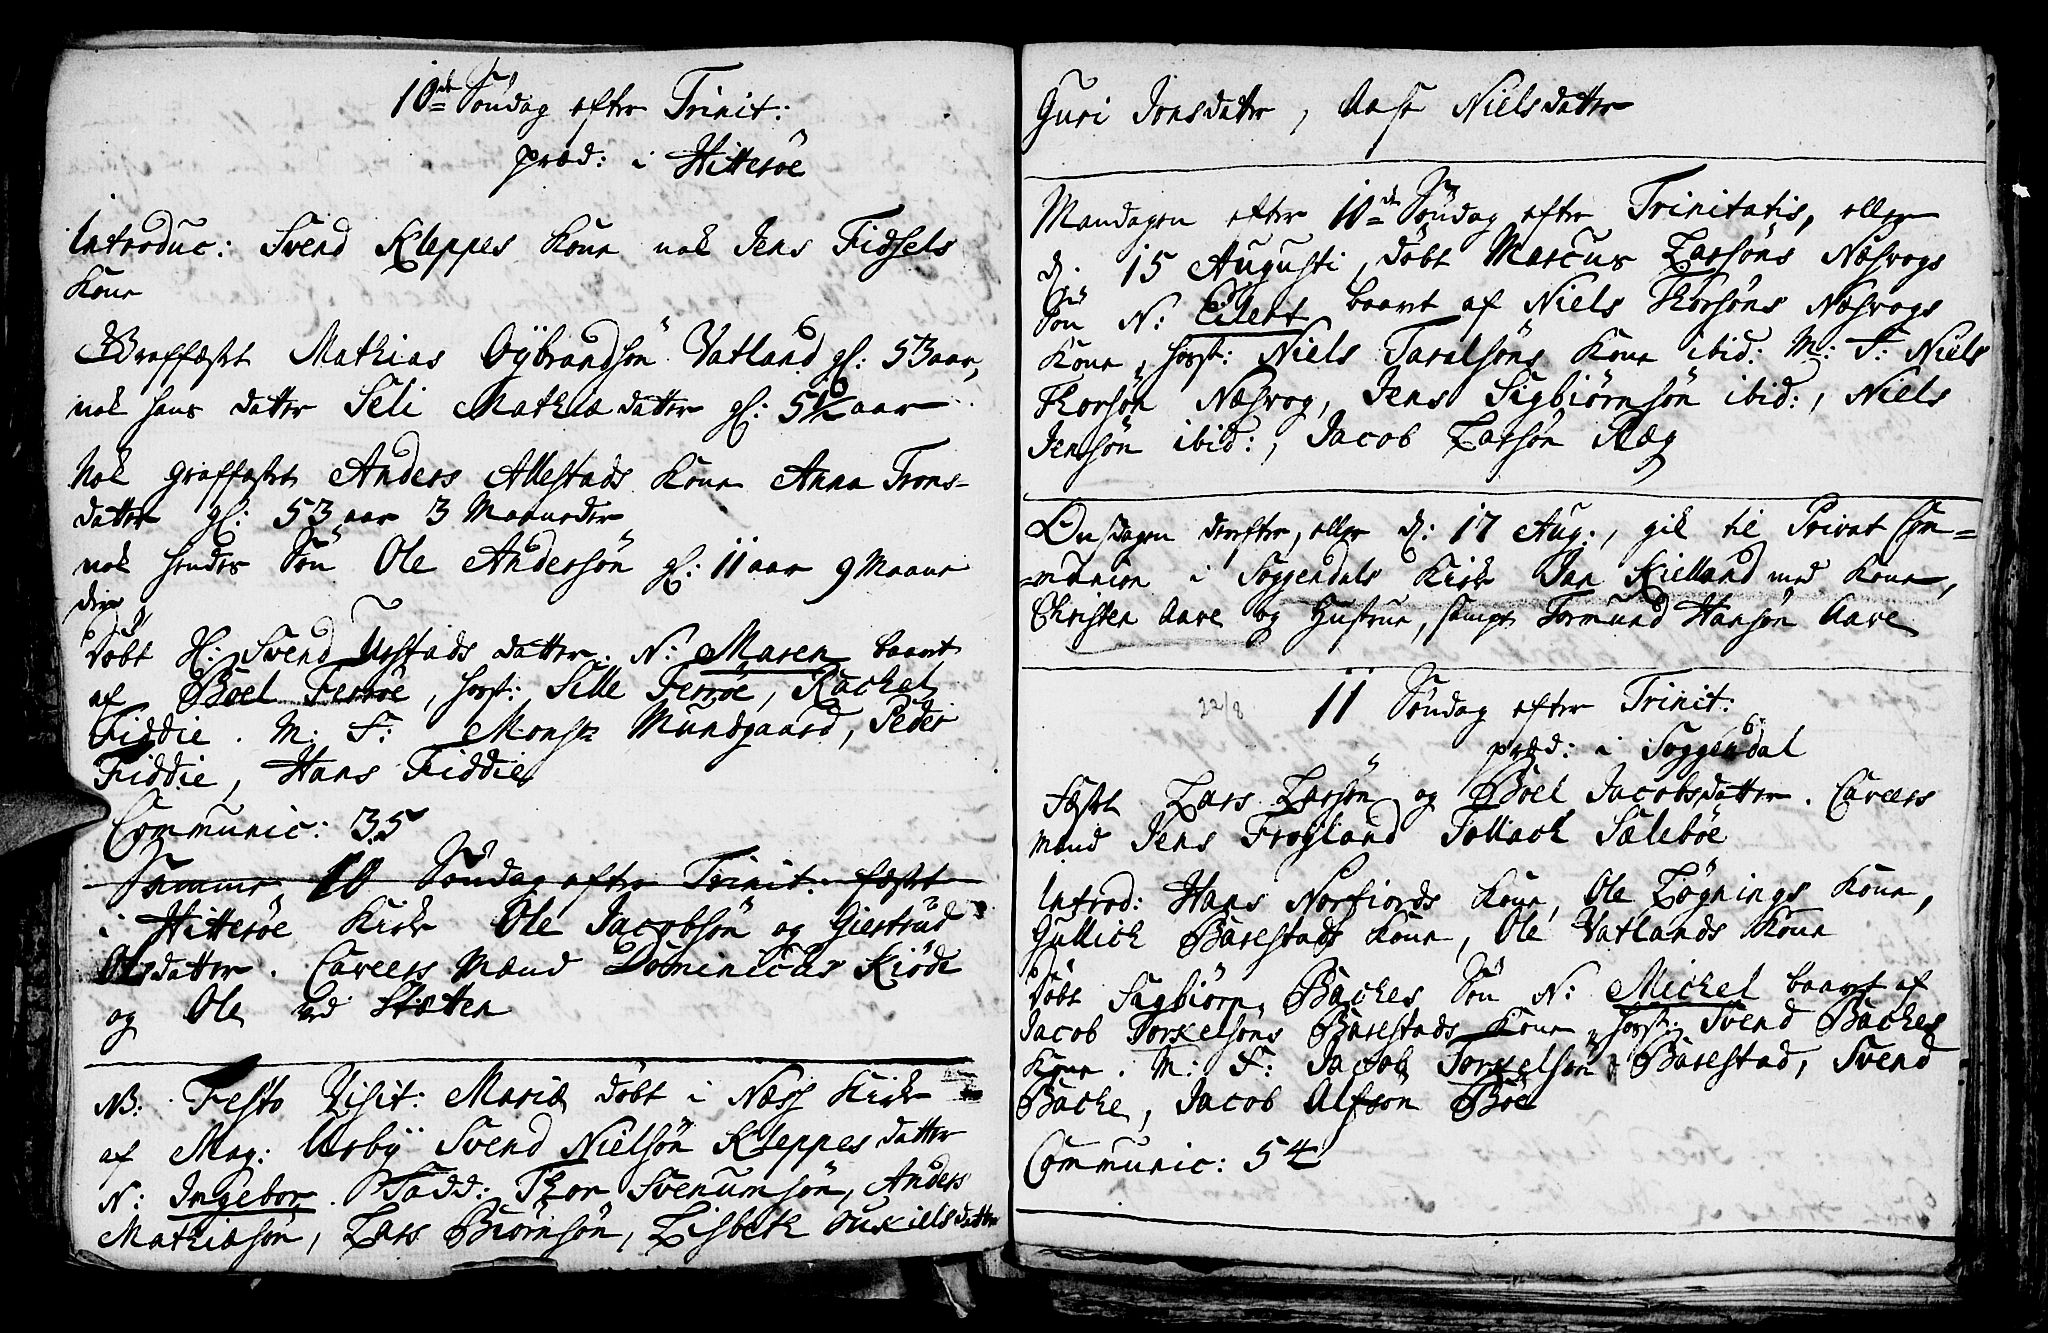 10de Søndag efter Trinit:
præd: i Hitterøe
Introduc: Svend Kleppes Kone nok Jens Fidsels
Kone
Graffæstet Mathias Oÿbrandsøn Vatland gl: 53 aar,
nok hans datter Seli Mathiæ datter gl: 5½ aar
Nok graffæstet Anders Allestads Kone Anna Trons-
datter gl: 53 aar 3 Maaneder
nok hendes Søn Ole Andersøn gl: 11 aar 9 Maane
der
døbt H: Svend Urstads datter. N: Maren baaret
af Boel Ferrøe, forst: Sille Ferrøe, Rachel
Fiddie. M: F: Monsr Mundgaard, Peder
Fiddie, Hans Fiddie
Communic: 35
Samme 10 Søndag efter Trinit: fæstet
i Hitterøe Kirke Ole Jacobsøn og Giertrud
Olsdatter. Caveers Mænd Dominicus Kiøde
og Ole ved Støtten
NB: Festo Visit: Mariæ døbt i Næss Kirke
af Mag: Urbÿ Svend Nielsøn Kleppes datter
N: Ingebor. Fadd: Thor Svenumsøn, Anders
Mathiæsøn, Lars Biørnsøn, Lisbeth Auxiels datter
Guri Jonsdatter, Aase Nielsdatter
Mandagen efter 10de Søndag efter Trinitatis, eller
d. 15 Augusti, døbt Marcus Larsøns Næsvogs
Søn N: Eilert baaret af Niels Thorsøns Næsvogs
Kone, forst: Niels Taralsøns Kone ibid: M: F: Niels
Thorsøn Næsvog, Jens Sigbiørnsøn ibid:, Niels
Jensøn ibid:, Jacob Larsøn Ræg
Onsdagen derefter, eller d: 17 Aug:, gik til Privat Com=
=munion i Soggendals Kirke Jan Kielland med Kone,
Christen Aare og Hustrue, sampt Tormund Hansøn Aare
22/8 11 Søndag efter Trinit:
præd: i Soggendal
fæstet Lars Larsøn og Boel Jacobsdatter. Caveers
mænd Jens Frøÿland Tollack Sælebøe
Introd: Hans Norfiords Kone, Ole Løgnings Kone,
Gullich Barestads Kone, Ole Vatlands Kone
døbt Sigbiørn Baches Søn N: Michel baaret af
Jacob Torkelsøns Barestads Kone, forst: Svend Baches
Kone. M: F: Jacob Torkelsøn Barestad, Svend
Bache, Jacob Alfsøn Bøe
Communic: 54